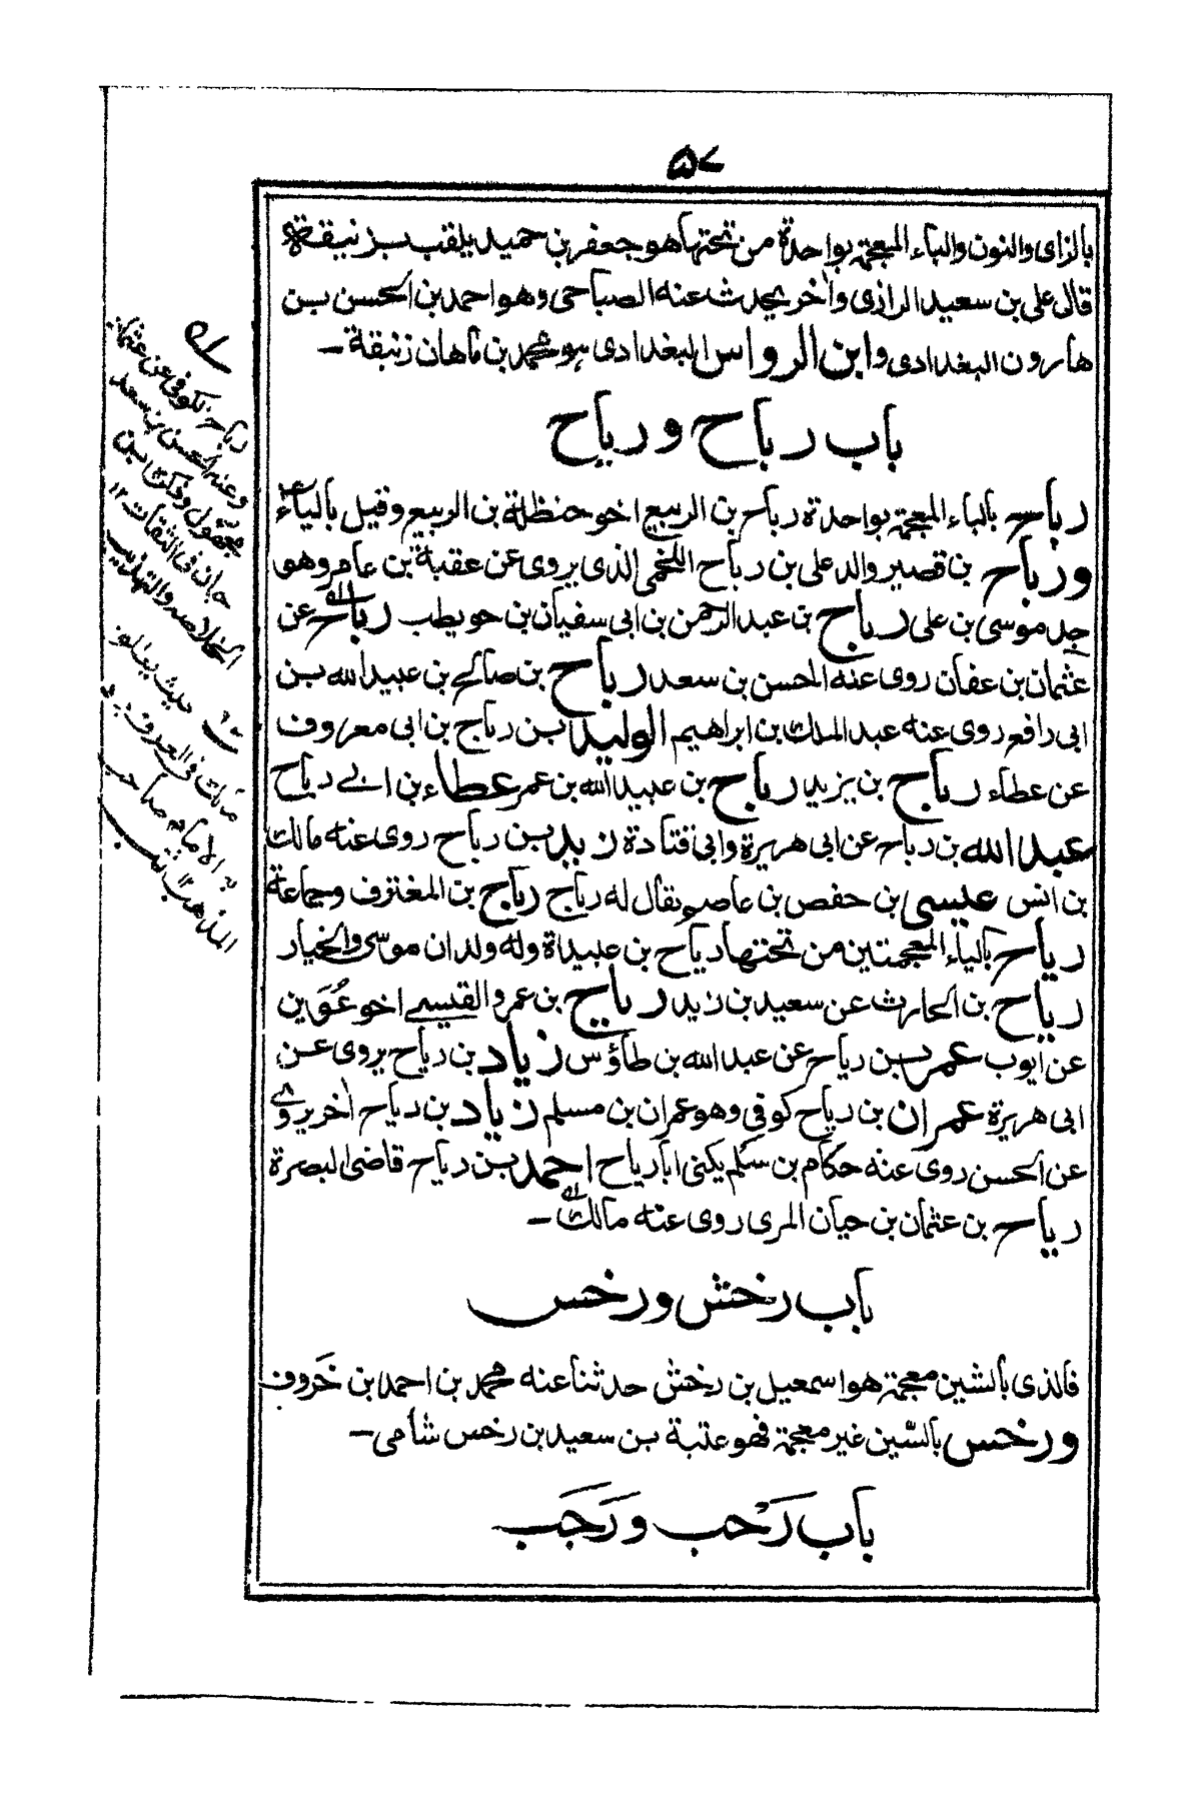 ٥٧
بالزاى والنون والباء المعجمة بواحدة من تحتها هو جعفر بن حميد يلقب بزنبقة
قال على بن سعيد الرازى واٰخر يحدث عنه الصباحى وهو احمد بن الحسن بن
هارون البغدادى وابن الرواس البغدادى هو محمد بن ماهان زنبقة ــ
باب رباح ورياح
رباح بالباء المعجمة بواحدة رباح بن الربيع اخو حنظلة بن الربيع وقيل بالياء
ورباح بن قصير والد على بن رباح اللخمى الذى يروى عن عقبة بن عامر وهو
جد موسى بن على رباح بن عبد الرحمن بن ابى سفيان بن حويطب رباح عن
عثمان بن عفان روى عنه الحسن بن سعد رباح بن صالح بن عبيد الله بن
ابى رافع روى عنه عبد الملك بن ابراهيم الوليد بن رباح بن ابى معروف
عن عطاء رباح بن يزيد رباح بن عبيد الله بن عمر عطاء بن ابى رباح
عبد الله بن رباح عن ابى هريرة وابى قتادة زيد بن رباح روى عنه مالك
بن انس عيسى بن حفص بن عاصم يقال له رباح رباح بن المغترف وجماعة
رياح بالياء المعجمتين من تحتها رياح بن عبيدة وله ولدان موسى والخيار
رياح بن الحارث عن سعيد بن زيد رياح بن عمرو القيسى اخو عُوَين
عن ايوب عمر بن رياح عن عبد الله بن طاؤس زياد بن رياح يروى عن
ابى هريرة عمران بن رياح كوفى وهو عمران بن مسلم زياد بن رياح اٰخر يروى
عن الحسن روى عنه حكام بن سلم يكنى ابا رياح احمد بن رياح قاضى البصرة
رياح بن عثمان بن حيان المرى روى عنه مالك ــ
باب رخش ورخس
فالذى بالشين معجمة هو اسمعيل بن رخش حدثنا عنه محمد بن احمد بن خَروف
ورخس بالسّين غير معجمة فهو عتبة بن سعيد بن رخس شامى ــ
باب رَحب ورَجَب
رباح كوفى عن عثمان
وعنه الحسن بن سعد
مقبول وذكره ابن
حبان فى الثقات ١٢
الخلاصه والتهذيب
الامام صاحب
المذهب ١٢